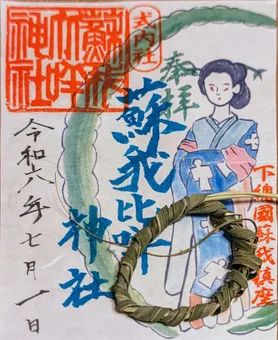 式内社
蘇我
比咩
神社
奉拝
蘇我比咩
神社
下総國蘇我鎮座
令和六年七月一日